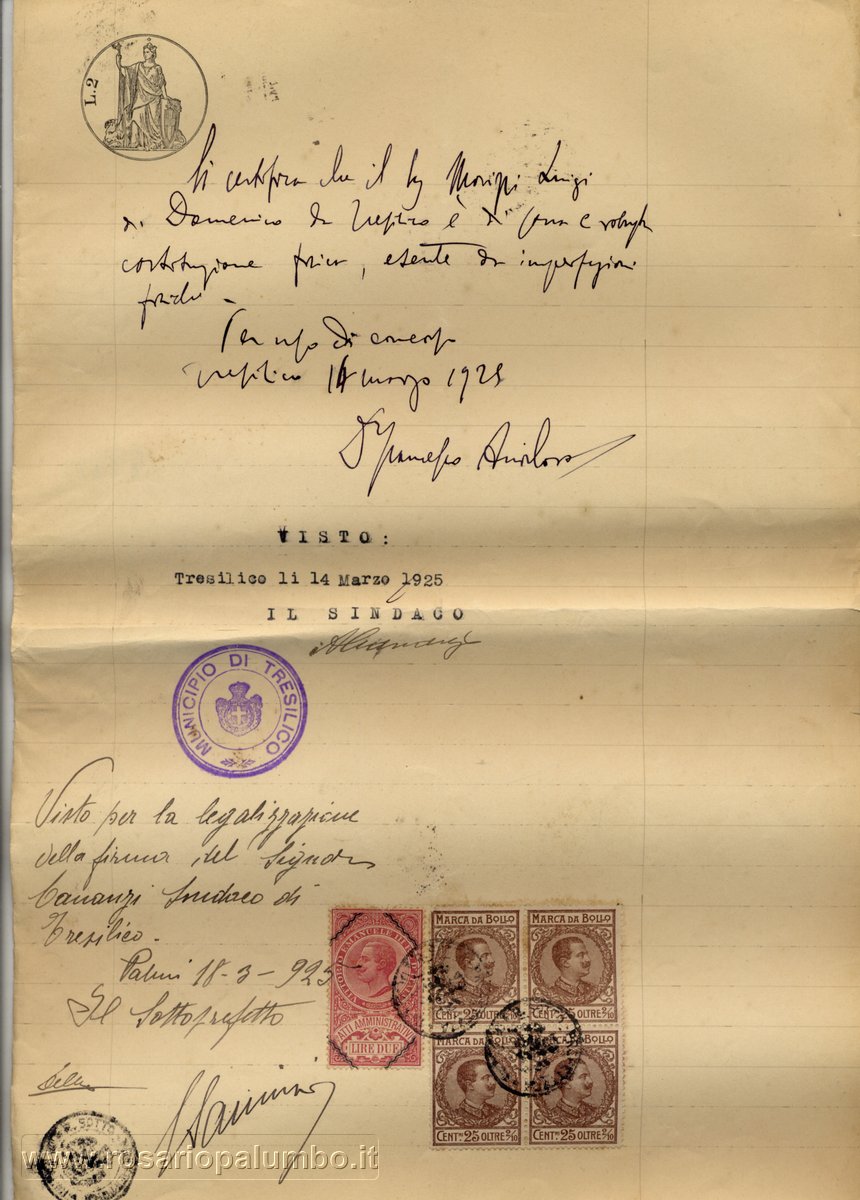 L.2
Si certifica che il Sig Morizzi Luigi
di Domenico da Tresilico è di sana e robusta
costituzione fisica, esente da imperfezioni
fisiche -
Per uso di concorso
Tresilico 14 marzo 1925
Francesco
VISTO:
Tresilico li 14 Marzo 1925
IL SINDACO
MUNICIPIO DI TRESILICO
Visto per la legalizzazione
della firma del Signor
Cananzi Sindaco di
Tresilico.
Palmi 18-3-925
Il Sottoprefetto
VITTORIO EMANUELE III
ATTI AMMINISTRATIVI
LIRE DUE
MARCA DA BOLLO
CENT.MI 25 OLTRE 2/10
MARCA DA BOLLO
CENT.MI 25 OLTRE 2/10
MARCA DA BOLLO
CENT.MI 25 OLTRE 2/10
MARCA DA BOLLO
CENT.MI 25 OLTRE 2/10
www.rosariopalumbo.it